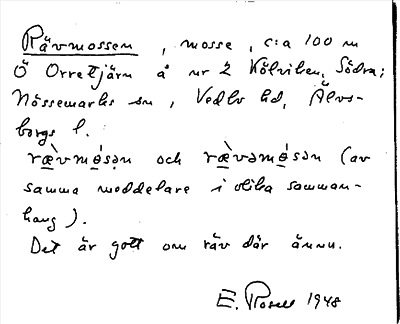 Rävmossen, mosse, c:a 100 m
Ö Orretjärn å nr 2 Kölviken, Södra;
Nössemarks sn, Vedbo hd, Älvs-
borgs l.
ræ̀vmǫ́sən och ræ̀vəmǫ́sən (av
samma meddelare i olika samman-
hang).
Det är gott om räv där ännu.
E. Rosell 1948